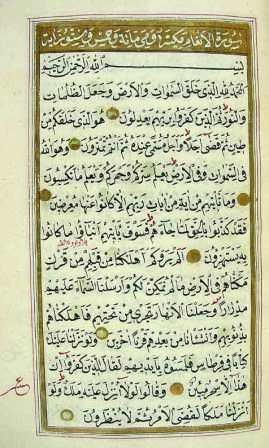 سورة الأنعام مكية وهي مائة وخمس وستون آية
بسم الله الرحمن الرحيم
الحمد لله الذي خلق السموات والأرض وجعل الظلمات
والنور ثم الذين كفروا بربهم يعدلون هو الذي خلقكم من
طين ثم قضى أجلا وأجل مسمى عنده ثم أنتم تمترون وهو الله
في السموات وفي الأرض يعلم سركم وجهركم ويعلم ما تكسبون
وما تأتيهم من آية من آيات ربهم إلا كانوا عنها معرضين
فقد كذبوا بالحق لما جاءهم فسوف يأتيهم أنباء ما كانوا
به يستهزؤن ألم يروا كم أهلكنا من قبلهم من قرن
مكناهم في الأرض ما لم نمكن لكم وأرسلنا السماء عليهم
مدرارا وجعلنا الأنهار تجري من تحتهم فأهلكناهم
بذنوبهم وأنشأنا من بعدهم قرنا آخرين ولو نزلنا عليك
كتابا في قرطاس فلمسوه بأيديهم لقال الذين كفروا إن
هذا إلا سحر مبين وقالوا لولا أنزل عليه ملك ولو
أنزلنا ملكا لقضي الأمر ثم لا ينظرون